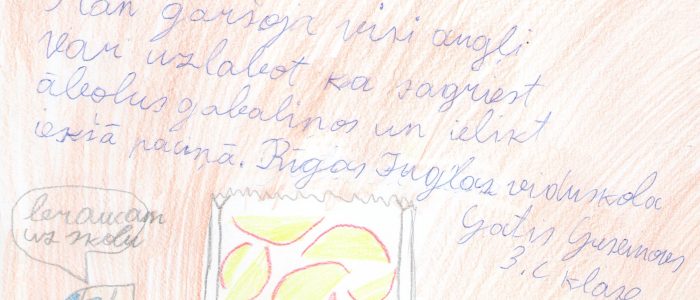 Man garšoja visi augļi
vari uzlabot ka sagriest
ābolus gabaliņos un ielikt
iekšā paciņā. Rīgas Juglas viduskola
Gatis
3. c klase
braucam
uz skolu